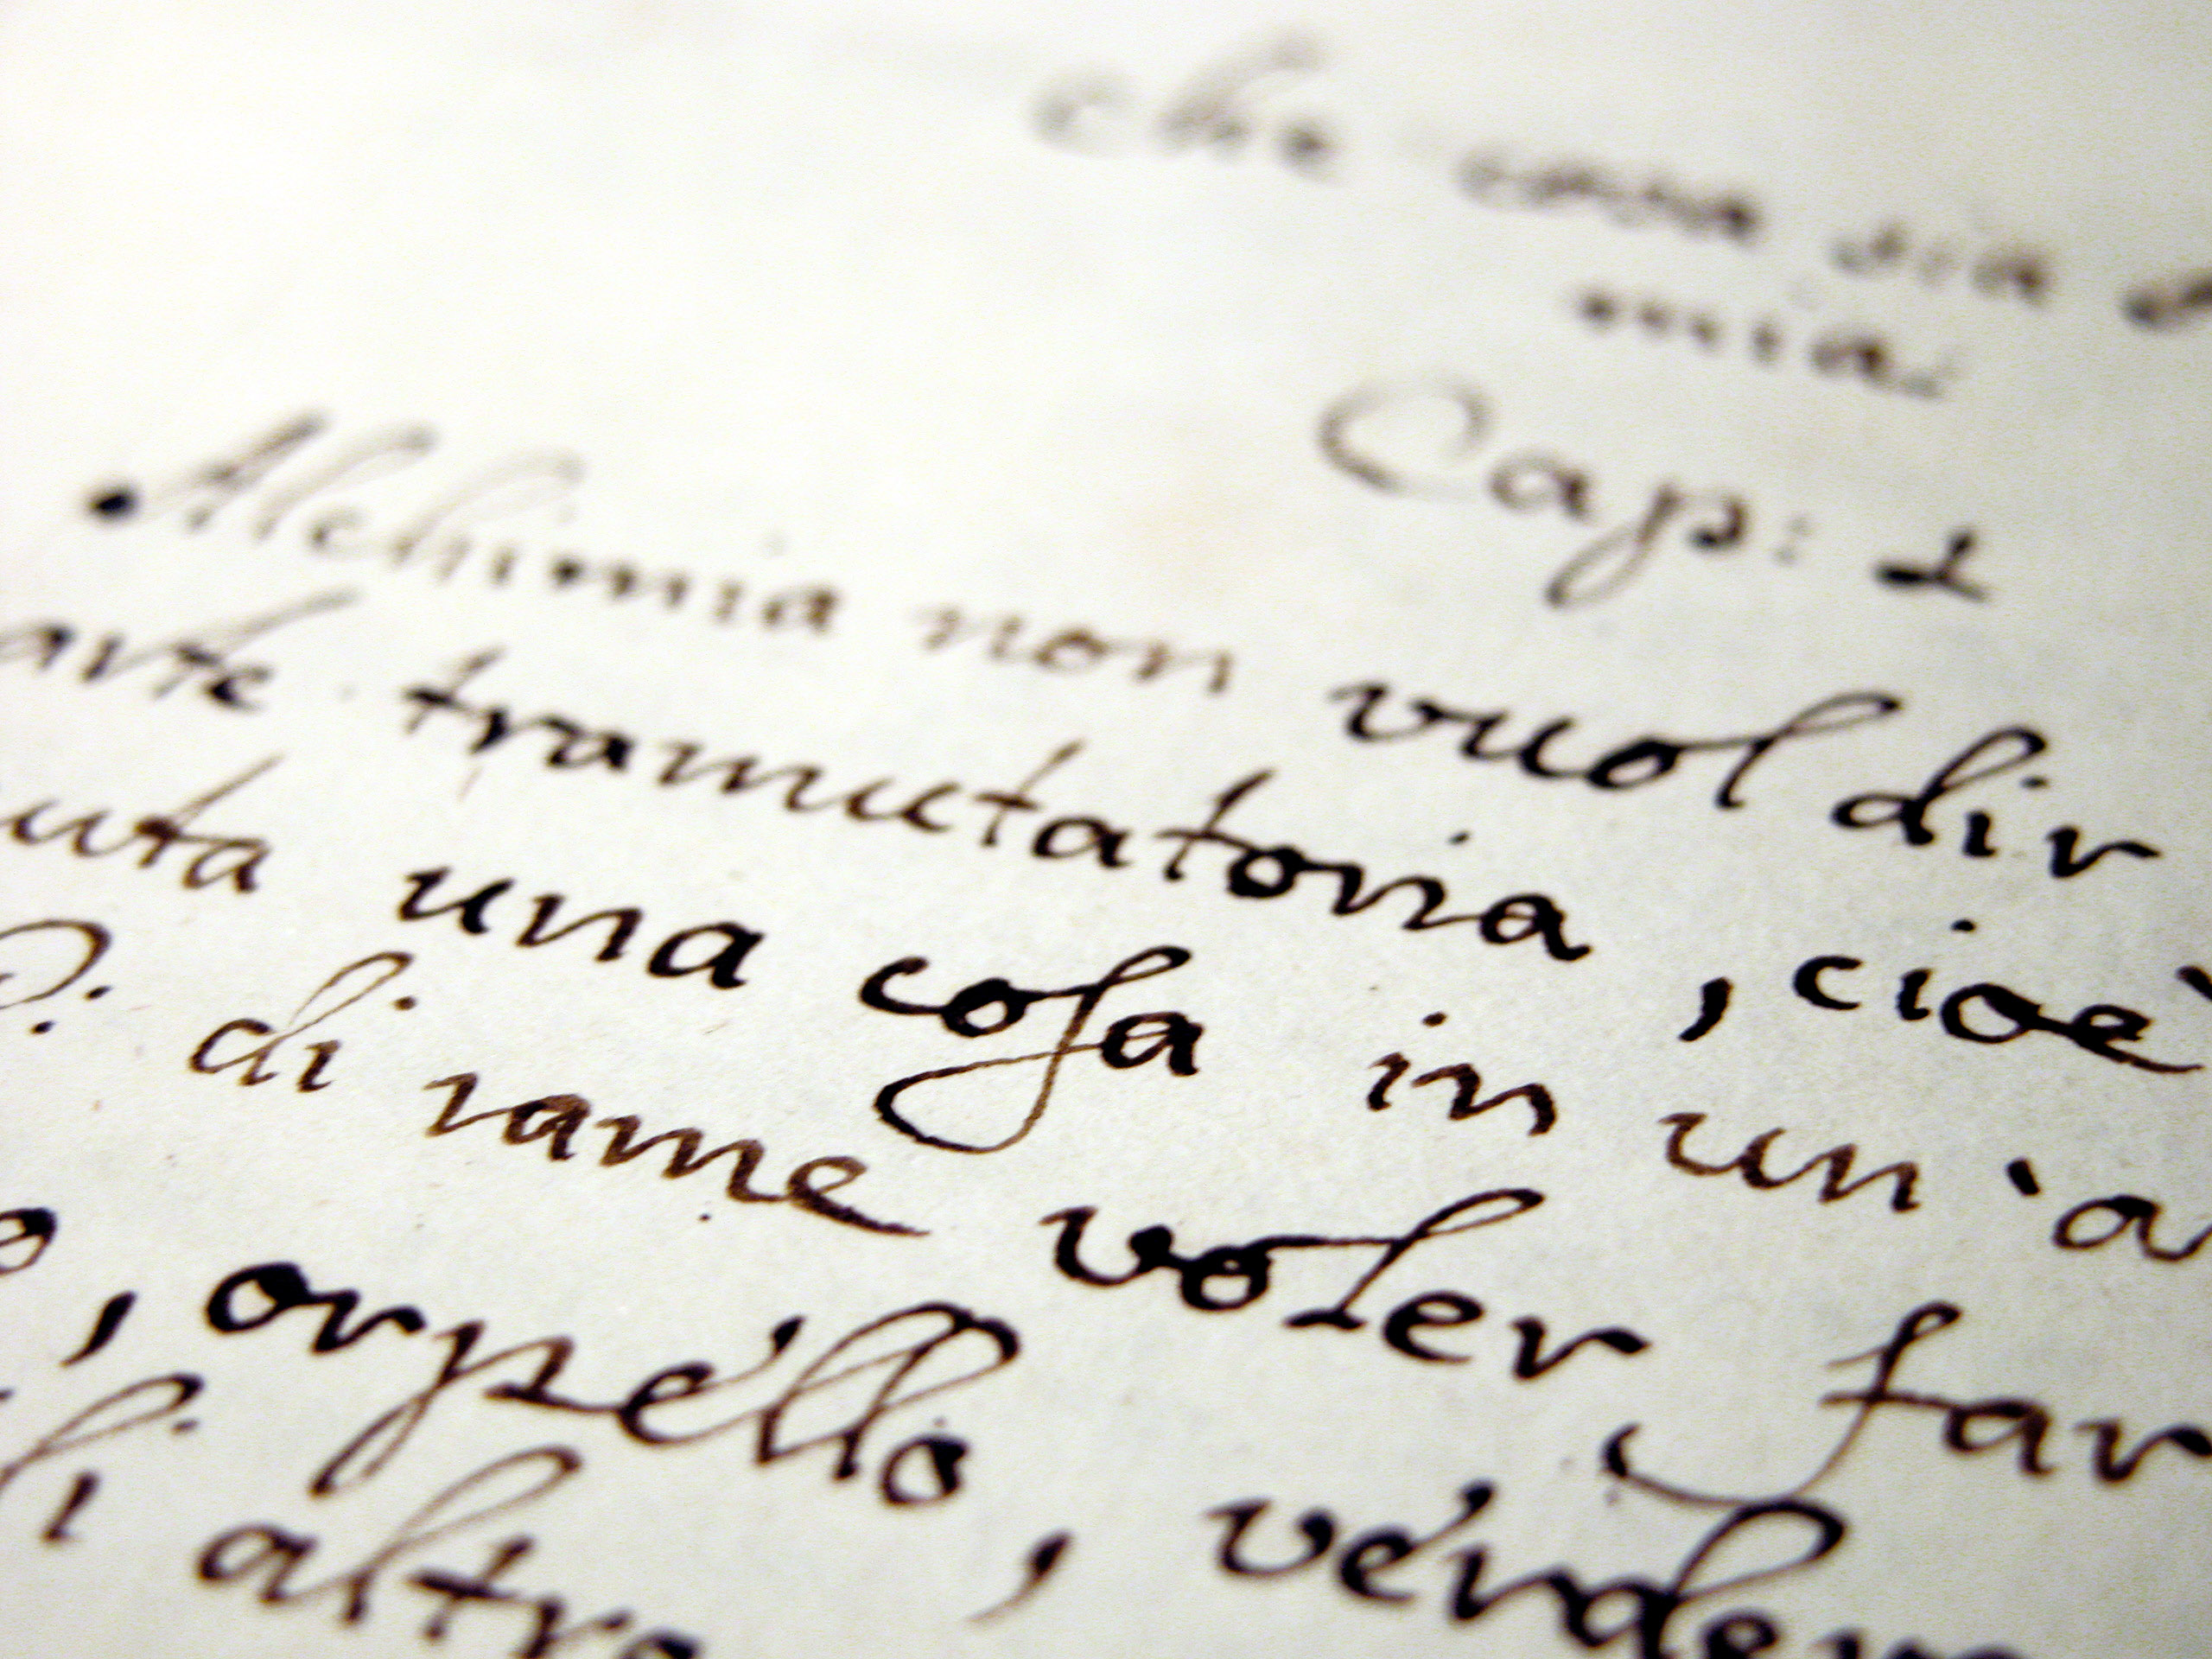 che cosa sia
mia.
Cap: 1
Alchimia non vuol dir
arte tramutatoria, cioè
uta una cosa in un'a
P: di rame voler far
o, orpéllo, vérder
di altro